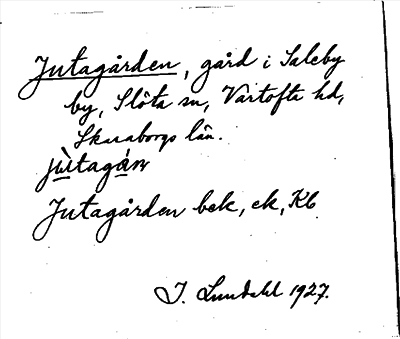 Jutagården, gård i Saleby
by, Slöta sn, Vartofta hd,
Skaraborgs län.
jùtagán
Jutagården bek, ek, Kb
J. Lundahl 1927.